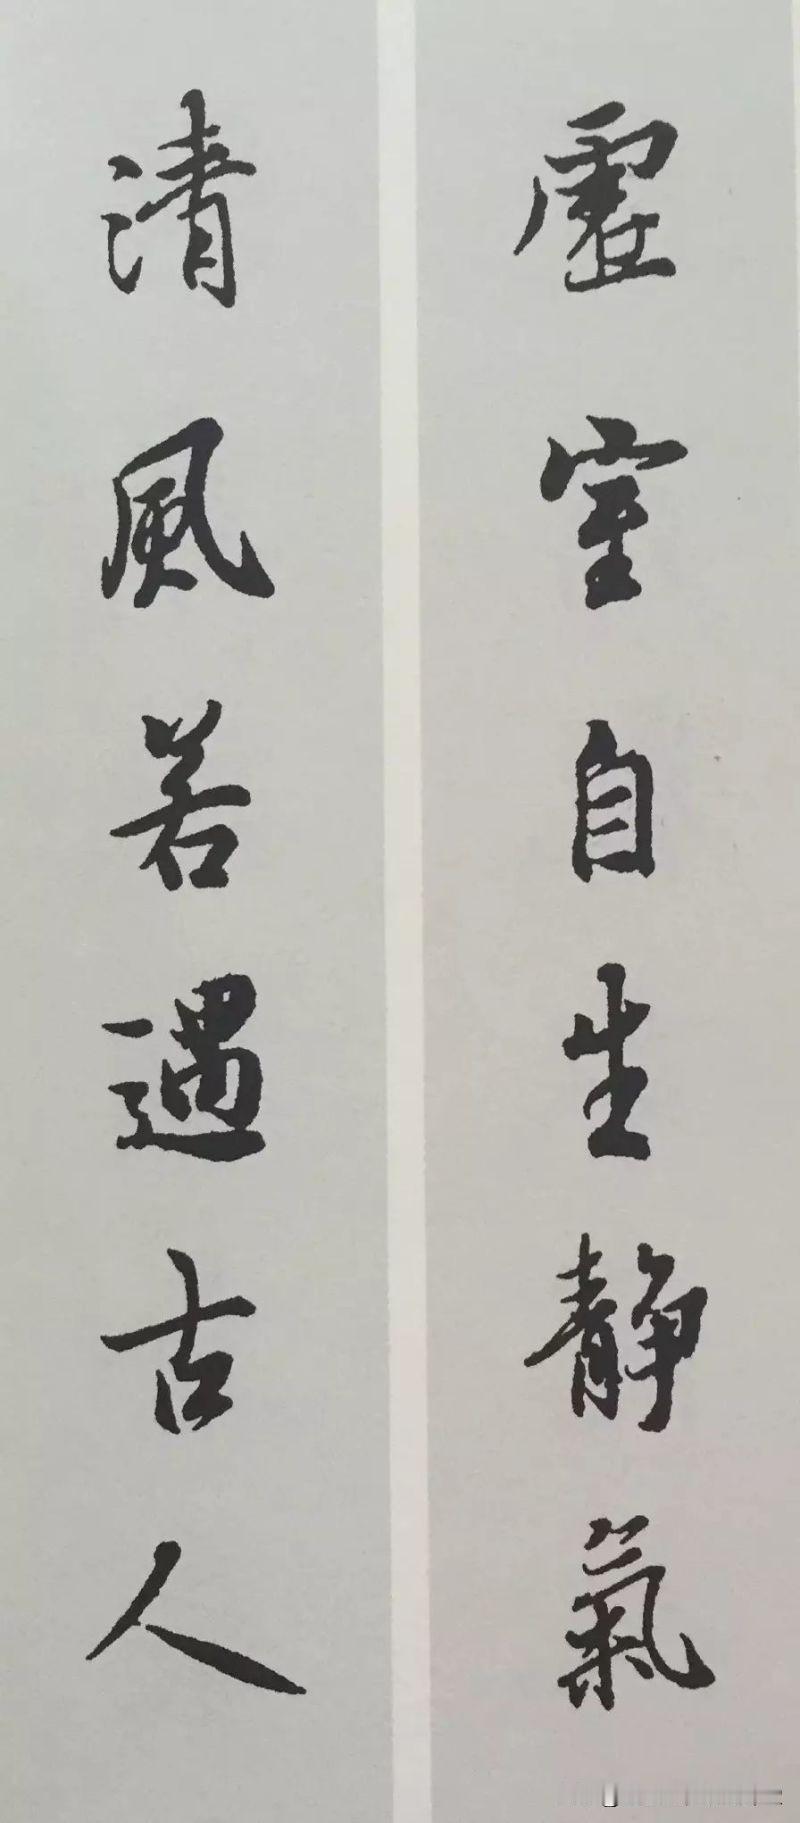 虛室自生靜氣
清風若遇古人